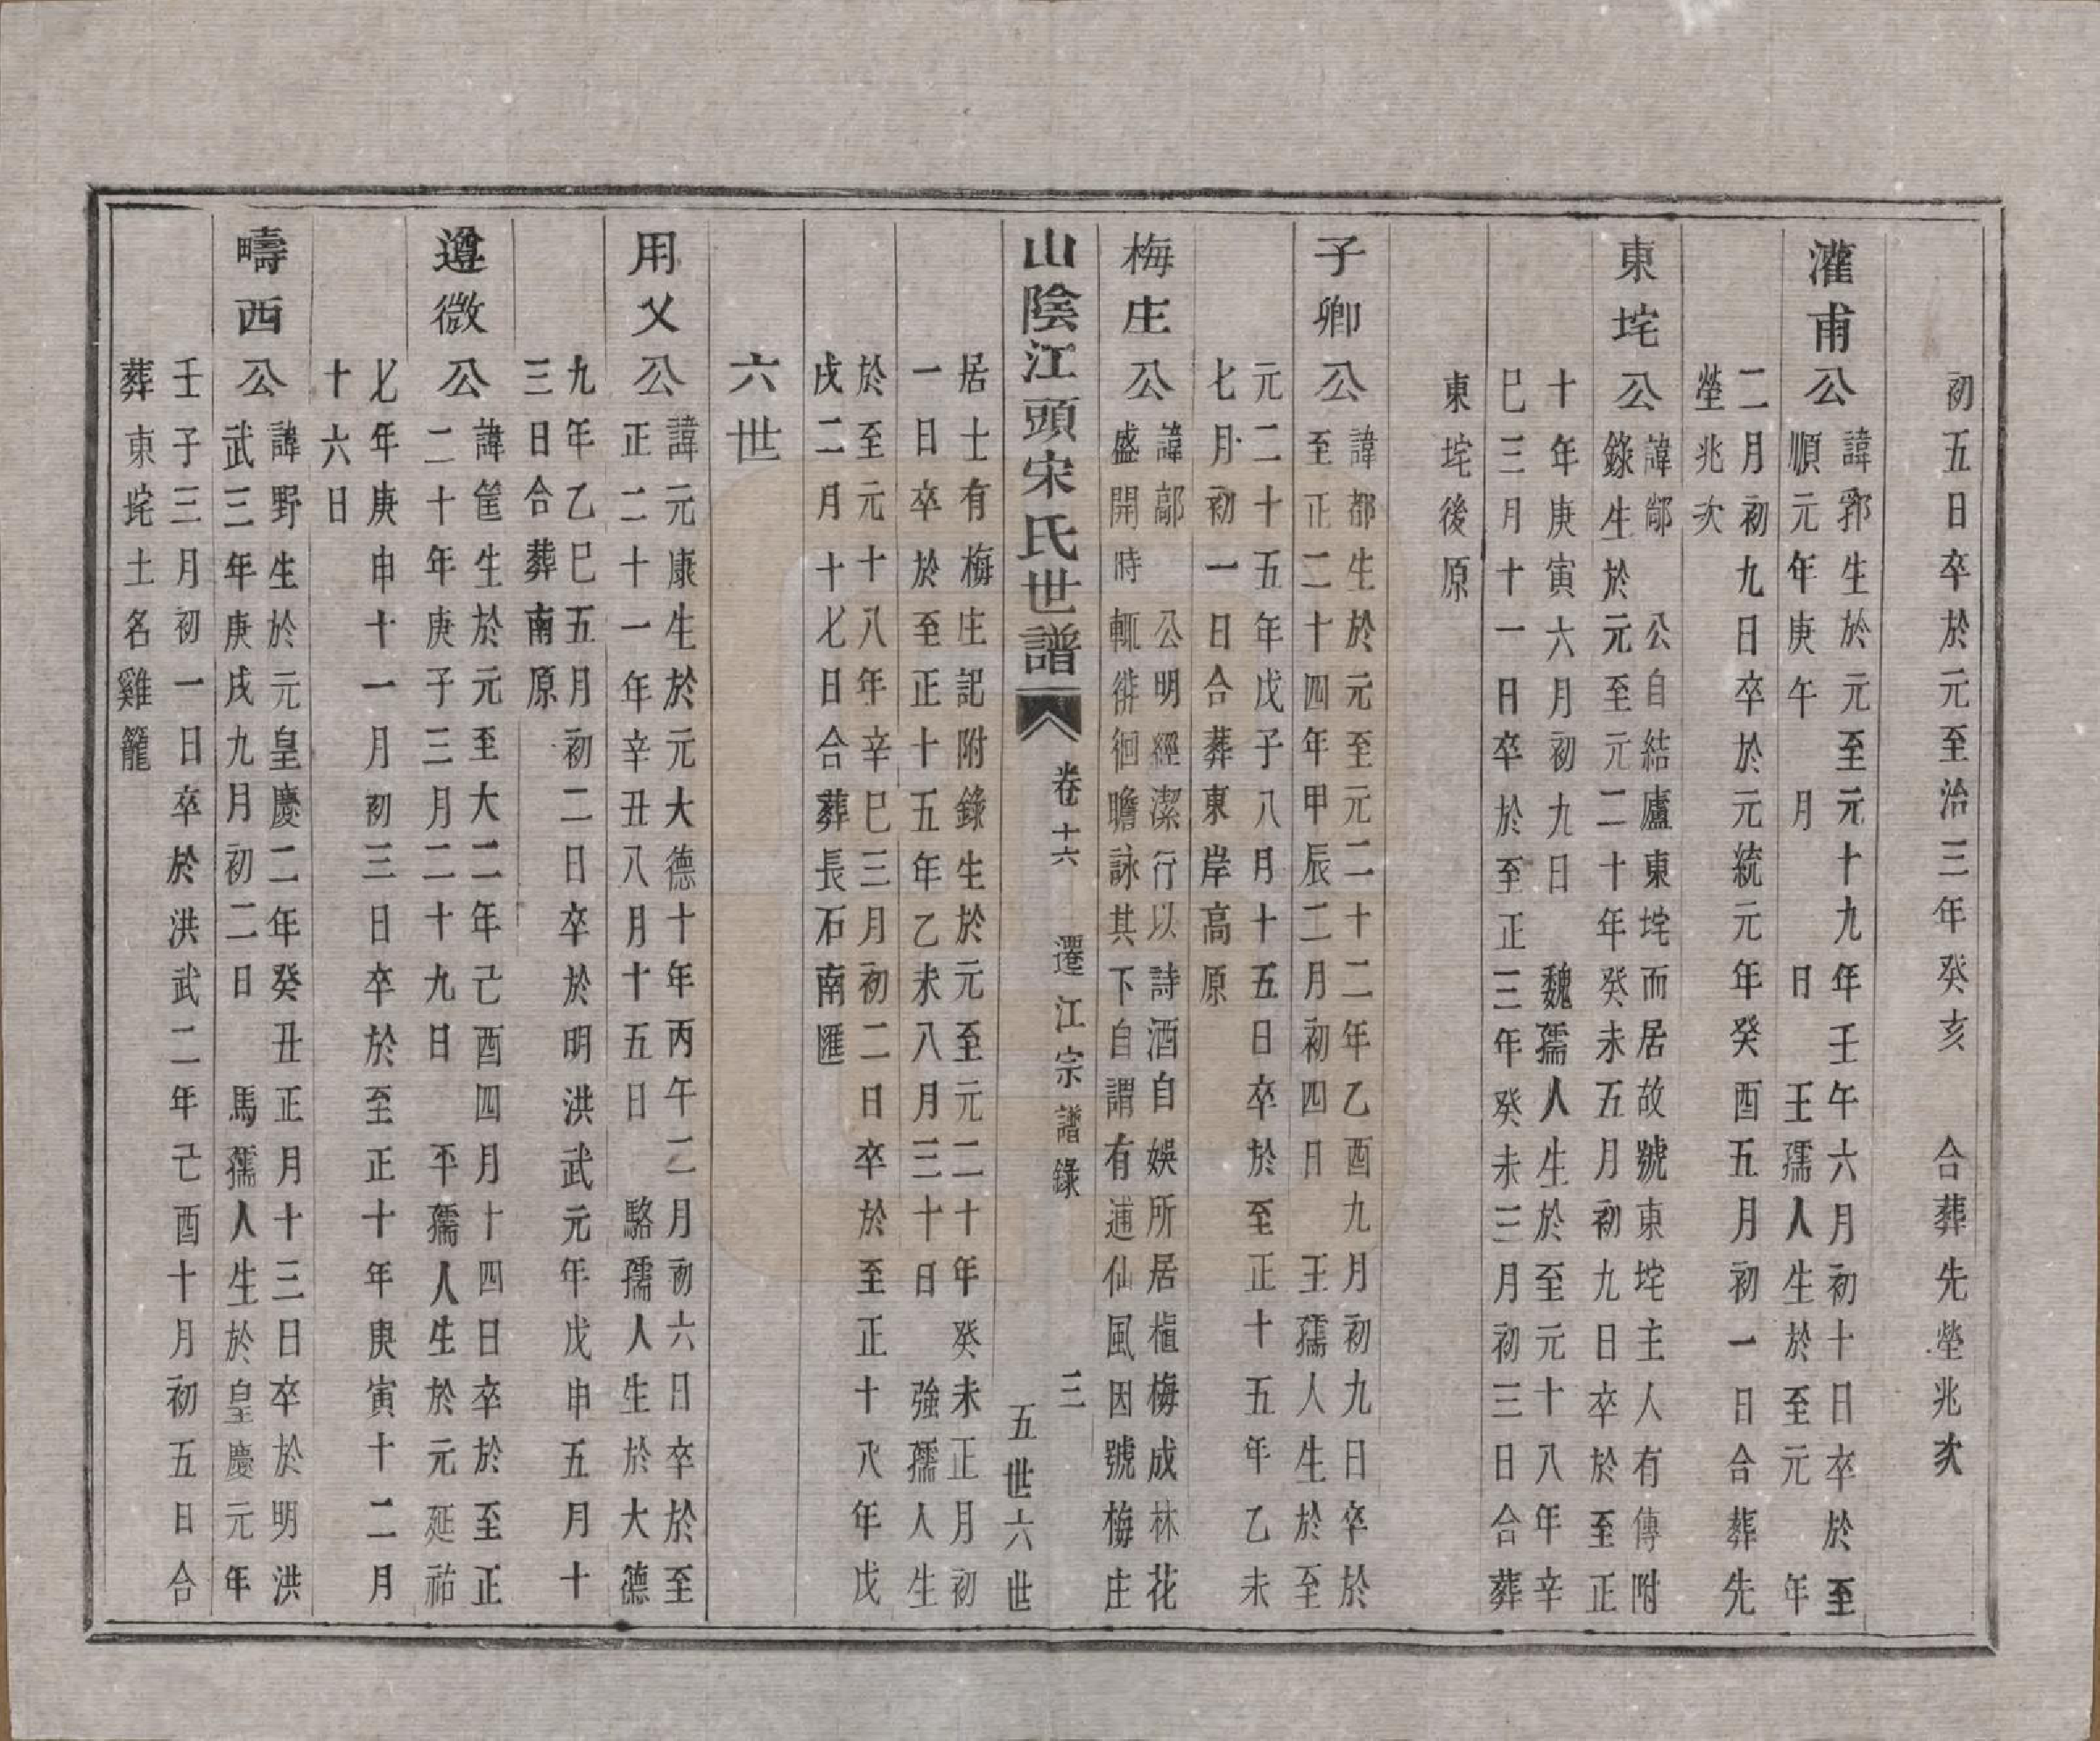 初五日卒於元至治三年癸亥　合葬先塋兆次
灌甫公
諱郛生於元至元十九年壬午六月初十日卒於至
順元年庚午　月　日　王孺人生於至元　年
二月初九日卒於元統元年癸酉五月初一日合葬先
塋兆次
東垞公
諱鄗　公自結廬東垞而居故號東垞主人有傳附
錄生於元至元二十年癸未五月初九日卒於至正
十年庚寅六月初九日　魏孺人生於至元十八年辛
巳三月十一日卒於至正三年癸未三月初三日合葬
東垞後原
子卿公
諱都生於元至元二十二年乙酉九月初九日卒於
至正二十四年甲辰二月初四日　王孺人生於至
元二十五年戊子八月十五日卒於至正十五年乙未
七月初一日合葬東岸高原
梅庄公
諱鄗　公明經潔行以詩酒自娛所居植梅成林花
盛開時輒徘徊瞻詠其下自謂有逋仙風因號梅庄
山陰江頭宋氏世譜　卷十六　遷江宗譜錄　三　五世六世
居士有梅庄記附錄生於元至元二十年癸未正月初
一日卒於至正十五年乙未八月三十日　強孺人生
於至元十八年辛巳三月初二日卒於至正十八年戊
戌二月十七日合葬長石南匯
六世
用乂公
諱元康生於元大德十年丙午二月初六日卒於至
正二十一年辛丑八月十五日　駱孺人生於大德
九年乙巳五月初二日卒於明洪武元年戊申五月十
三日合葬南原
遵微公
諱筐生於元至大二年己酉四月十四日卒於至正
二十年庚子三月二十九日　平孺人生於元延祐
七年庚申十一月初三日卒於至正十年庚寅十二月
十六日
疇西公
諱野生於元皇慶二年癸丑正月十三日卒於明洪
武三年庚戌九月初二日　馬孺人生於皇慶元年
壬子三月初一日卒於洪武二年己酉十月初五日合
葬東垞土名雞籠